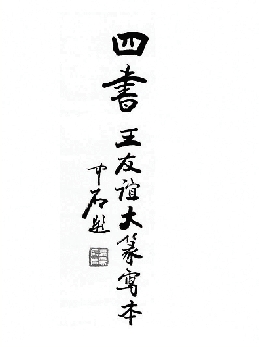 四書
王友谊大篆寫本
中石题